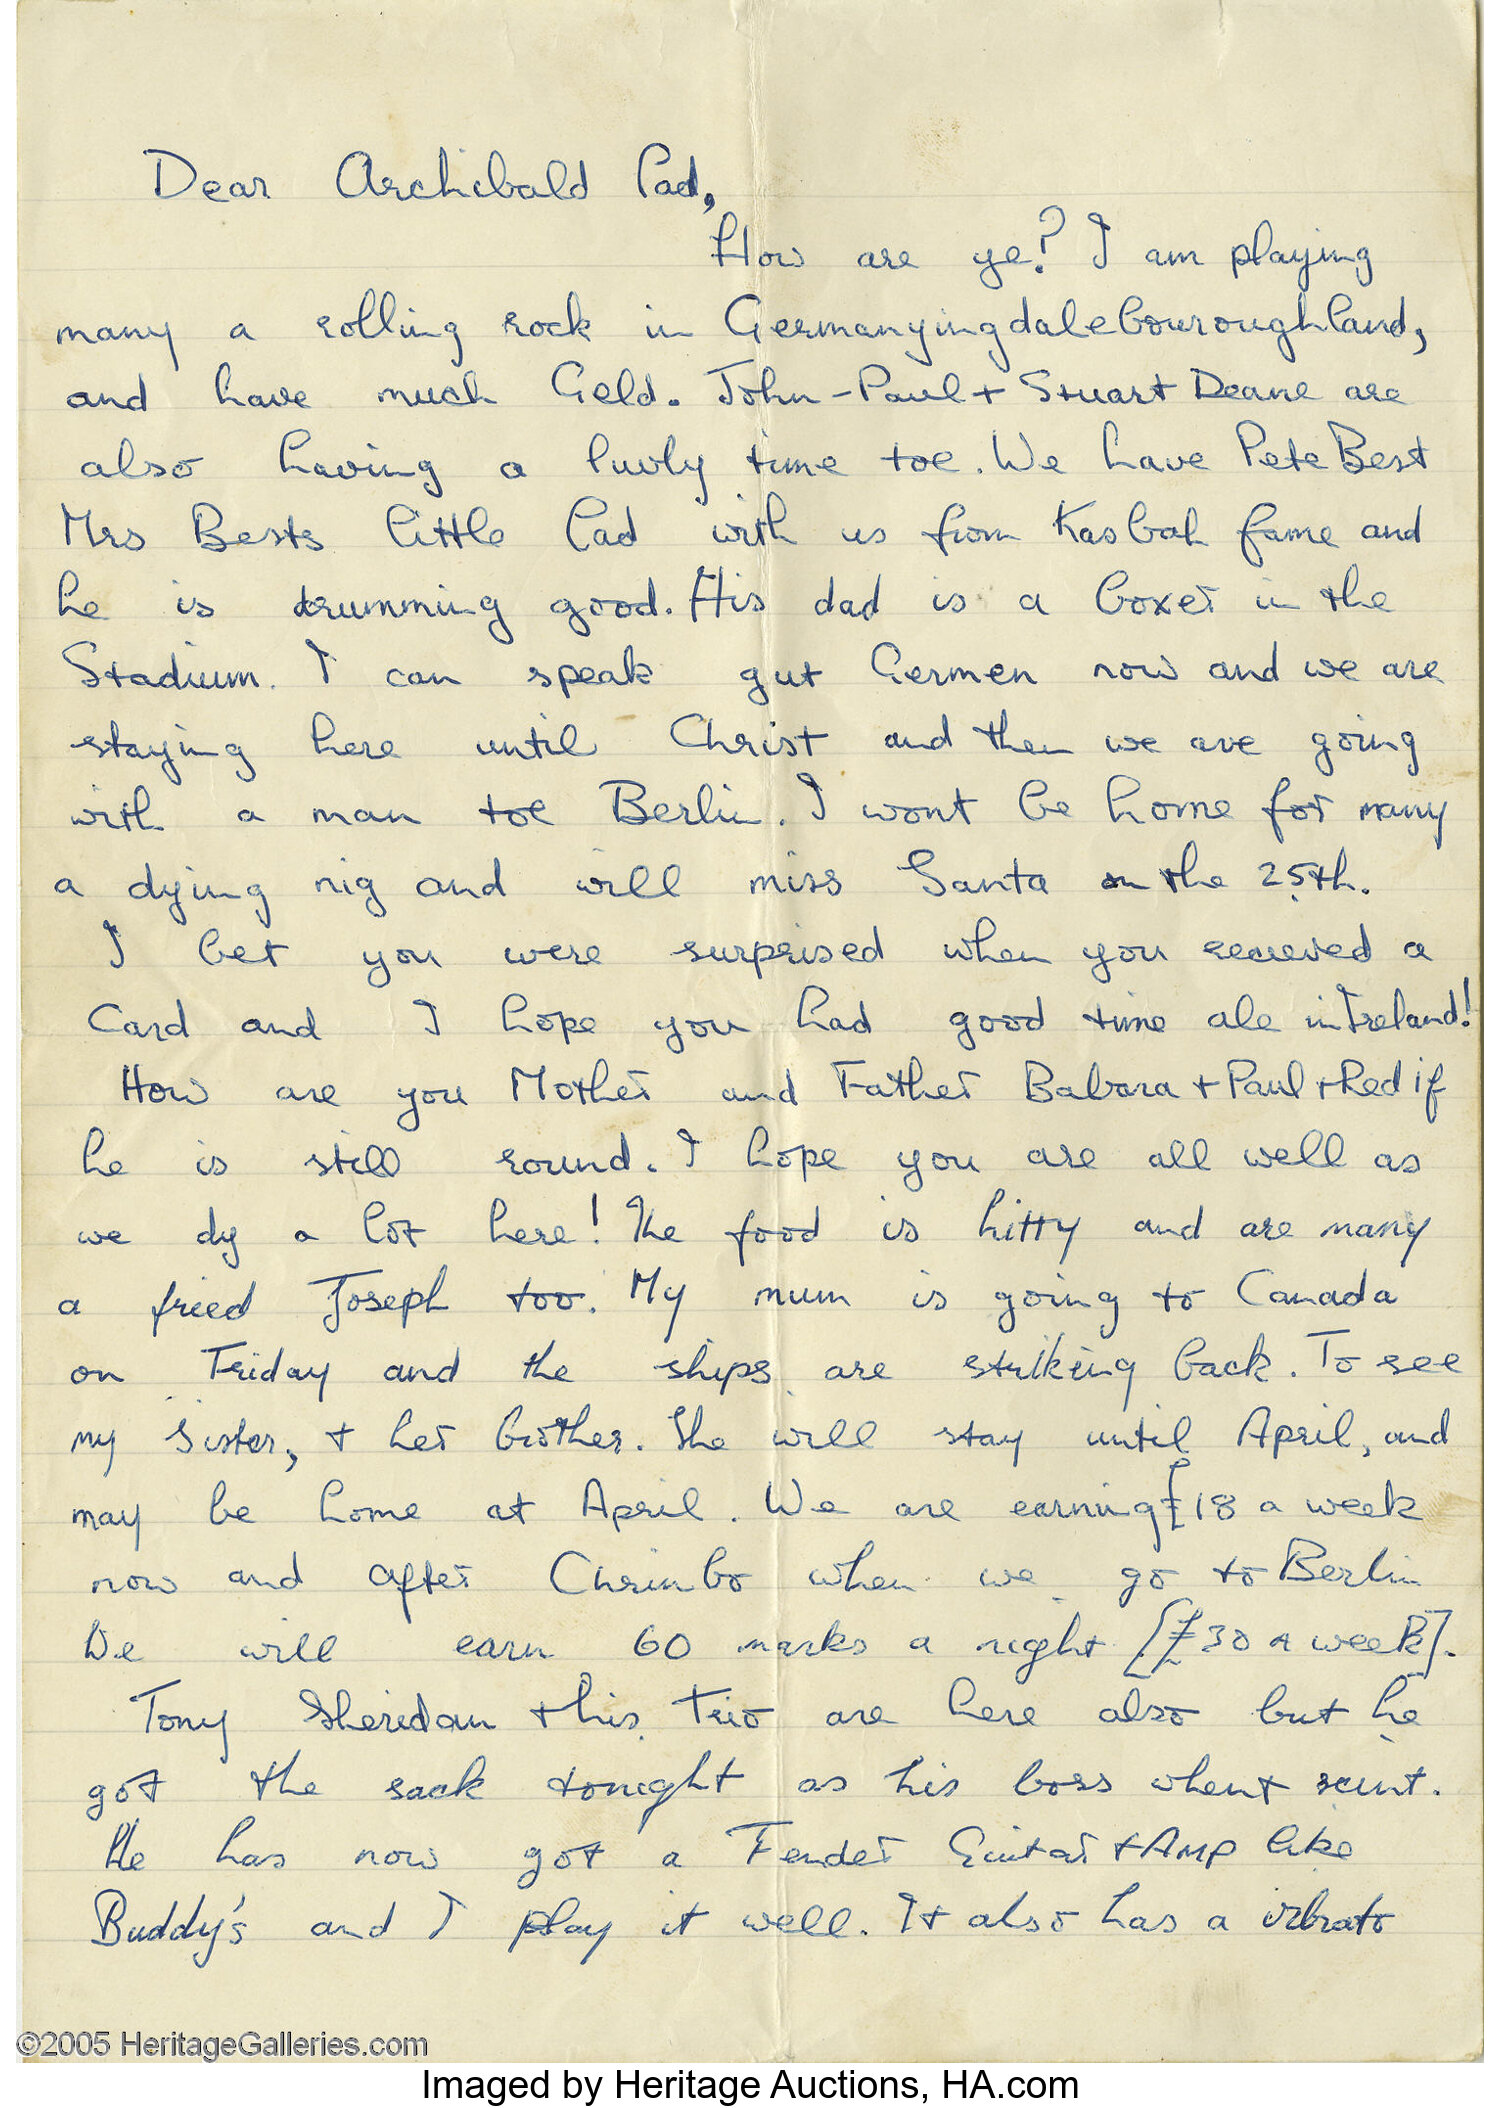 Dear Archibald Pad,
How are ye? I am playing
many a rolling rock in Germanyingdalebouroughland,
and have much Geld. John-Paul + Stuart Deane are
also having a luvly time toe. We have Pete Best
Mrs Bests little lad with us from Kasbah fame and
he is drumming good. His dad is a boxer in the
Stadium. I can speak gut Germen now and we are
staying here until Christ and then we are going
with a man toe Berlin. I wont be home for many
a dying nig and will miss Santa on the 25th.
I bet you were surprised when you recieved a
Card and I hope you had good time ale in Ireland!
How are you Mother and Father Babara + Paul + Red if
he is still round. I hope you are all well as
we dy a lot here! The food is hitty and are many
a fried Joseph too. My mum is going to Canada
on Friday and the ships are striking back. To see
my sister, + her brother. She will stay until April, and
may be home at April. We are earning £18 a week
now and after Chrimbo when we go to Berlin
We will earn 60 marks a night [£30 a week].
Tony Sheridan + his Trio are here also but he
got the sack tonight as his boss whent scint.
He has now got a Fender Guitar + Amp like
Buddy's and I play it well. It also has a vibrato
©2005 HeritageGalleries.com
Imaged by Heritage Auctions, HA.com